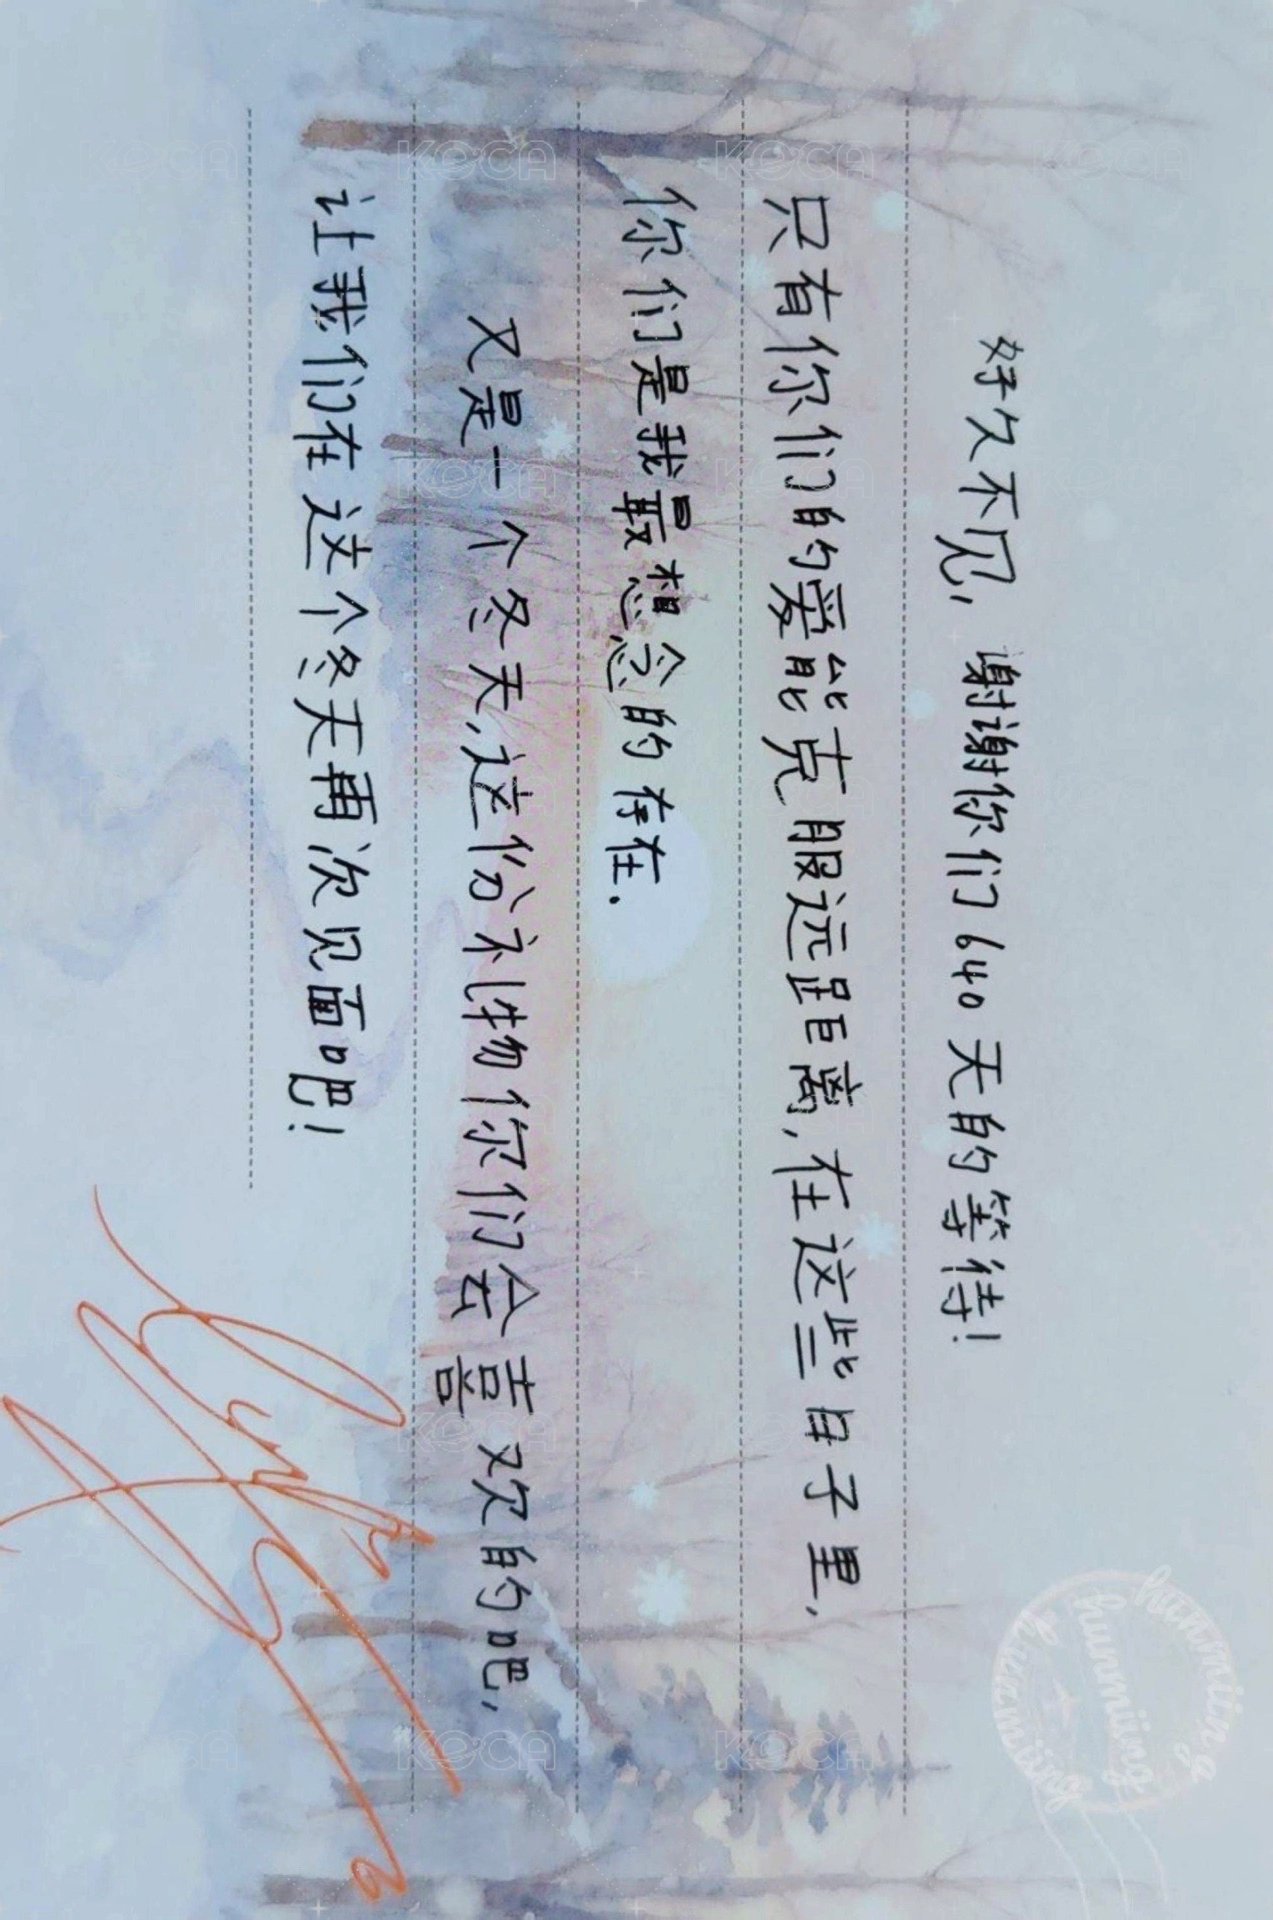 好久不见，谢谢你们640天的等待！
只有你们的爱能克服远距离,在这些日子里,
你们是我最想念的存在.
又是一个冬天,这份礼物你们会喜欢的吧,
让我们在这个冬天再次见面吧！
hunmiing
hunmiing
hunmiing
KOCA